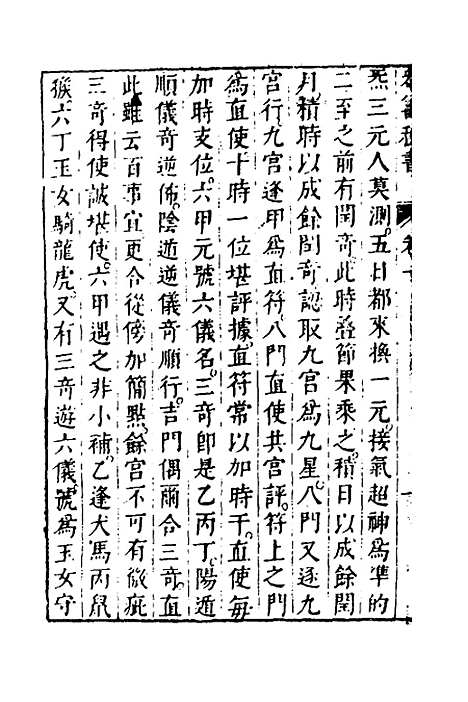 炁三元人莫測。五日都來換一元。接氣超神爲準的
二至之前有閏奇此時疊節果乘之。積日以成餘閏
月積時以成餘閏奇認取九宮爲九星。八門又逐九
宮行九宮逢甲爲直符。八門直使共宮評。符上之門
爲直使十時一位堪評據。直符常以加時干。直使每
加時支位。六甲元號六儀名。三奇卽是乙丙丁。陽遁
順儀奇逆佈。陰遁逆儀奇順行。吉門偶爾合三奇。直
此雖云百事宜更合從傍加簡點。餘宮不可有微疵
三奇得使誠堪使。六甲遇之非小補。乙逢犬馬丙鼠
猴六丁玉女騎龍虎。又有三奇遊六儀。號爲玉女守